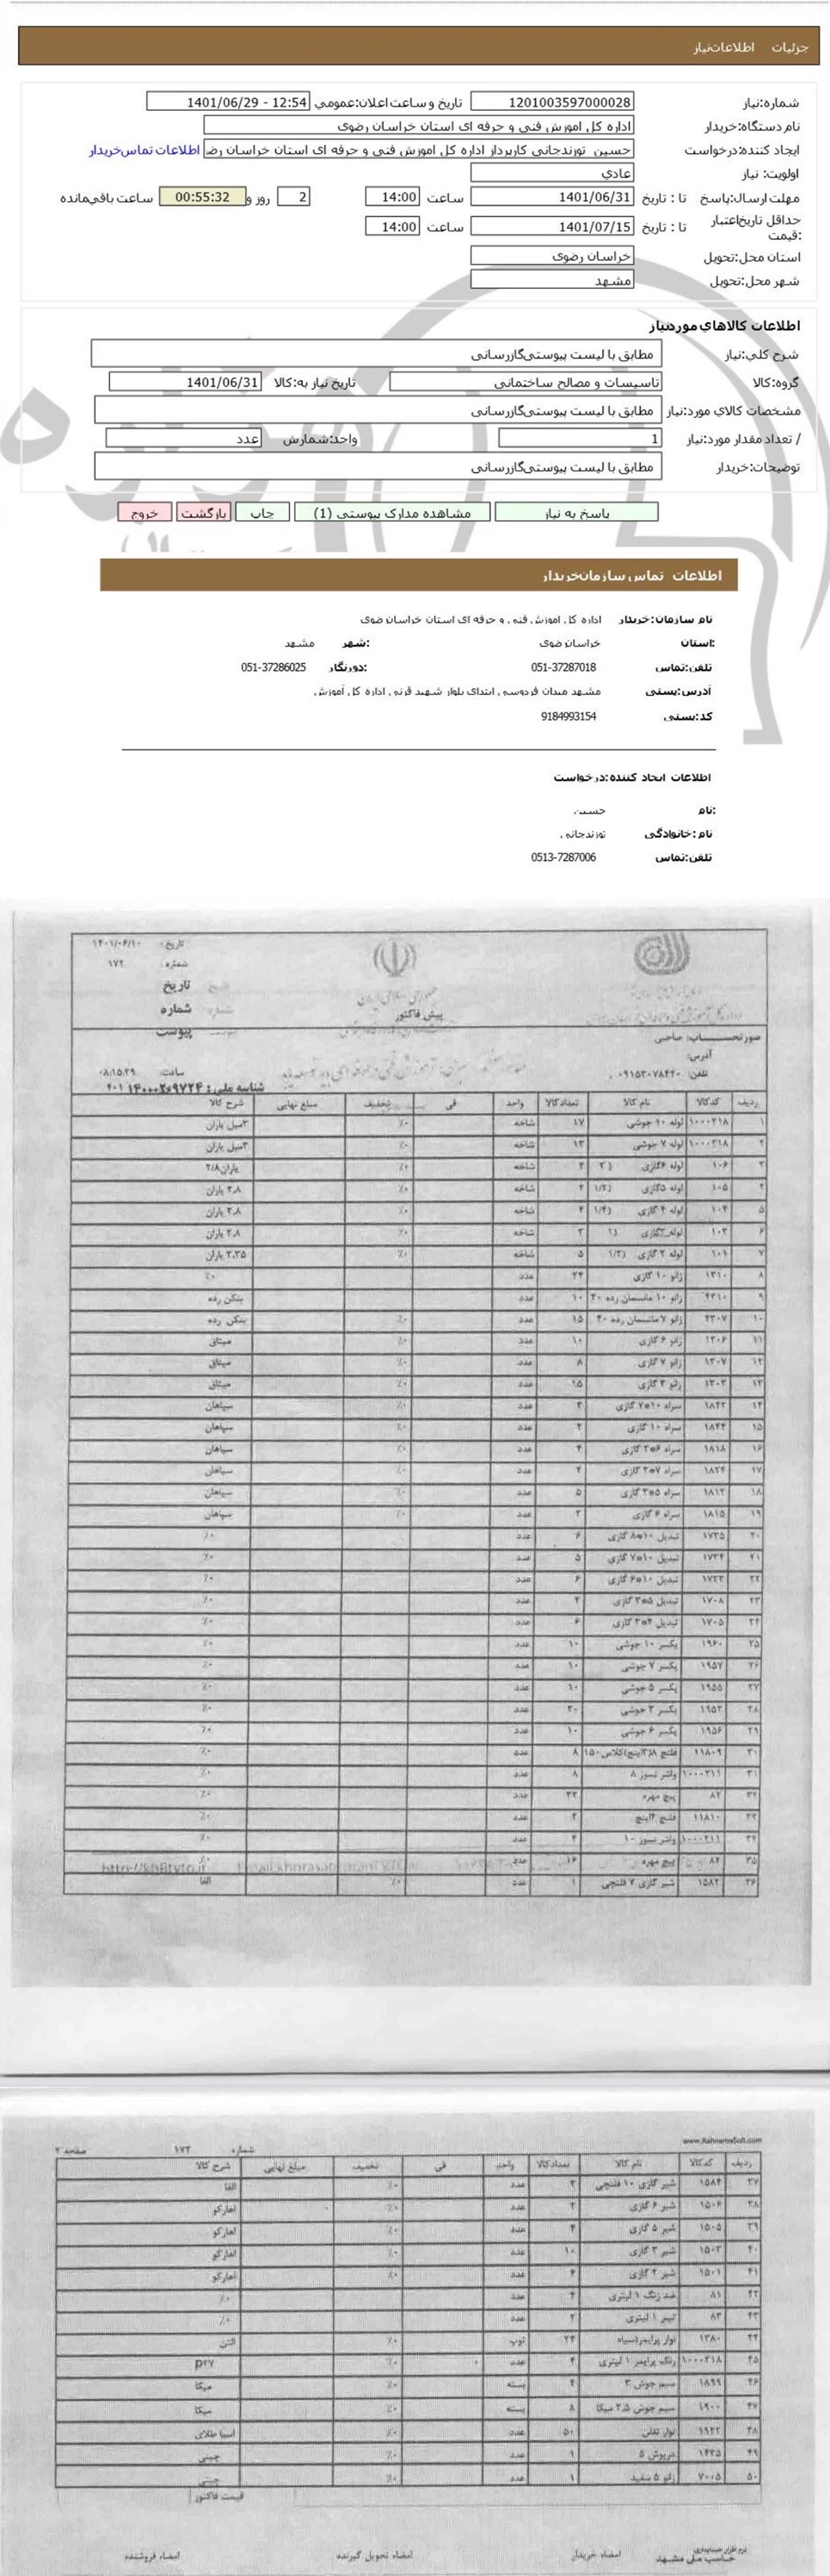 جزئیات اطلاعات نیاز
شماره نیاز: 1201003597000028 تاریخ و ساعت اعلان عمومی: 1401/06/29 - 12:54
نام دستگاه خریدار: اداره کل اموزش فنی و حرفه ای استان خراسان رضوی
ایجاد کننده درخواست: حسین توزندجانی کاربرداز اداره کل اموزش فنی و حرفه ای استان خراسان رض اطلاعات تماس خریدار
اولویت نیاز: عادي
مهلت ارسال پاسخ: تا تاریخ: 1401/06/31 ساعت 14:00 2 روز و 00:55:32 ساعت باقی مانده
حداقل تاریخ اعتبار قیمت: تا تاریخ: 1401/07/15 ساعت 14:00
استان محل تحویل: خراسان رضوی
شهر محل تحویل: مشهد
اطلاعات کالاهای مورد نیاز
شرح کلی نیاز: مطابق با لیست پیوستی گازرسانی
گروه کالا: تاسیسات و مصالح ساختمانی تاریخ نیاز به کالا: 1401/06/31
مشخصات کالاي مورد نیاز: مطابق با لیست پیوستی گازرسانی
/ تعداد مقدار مورد نیاز: 1 واحد شمارش: عدد
توضیحات خریدار: مطابق با لیست پیوستی گازرسانی
پاسخ به نیاز مشاهده مدارک پیوستی (1) چاپ بازگشت خروج
اطلاعات تماس سازمان خریدار
نام سازمان خریدار: اداره کل اموزش فنی و حرفه ای استان خراسان رضوی
استان: خراسان رضوی شهر: مشهد
تلفن تماس: 051-37287018 دورنگار: 051-37286025
آدرس پستی: مشهد میدان فردوسی ابتدای بلوار شهید قرنی اداره کل آموزش
کد پستی: 9184993154
اطلاعات ایجاد کننده درخواست:
نام: حسین
نام خانوادگی: توزندجانی
تلفن تماس: 0513-7287006
تاریخ: ۱۴۰۱/۰۶/۱۰
شماره: ۱۷۲
تاریخ
پیش فاکتور
شماره
پیوست
صورتحساب: صاحبی
آدرس:
تلفن: ۰۹۱۵۳۰۷۸۴۴۰ ساعت: ۰۸:۱۵:۲۹
شناسه ملی: ۱۴۰۰۰۲۶۹۷۲۴
ردیف کد کالا نام کالا تعداد کالا واحد فی تخفیف مبلغ نهایی شرح کالا
۱ ۱۰۰۰۲۱۸ لوله ۱۰ جوشی ۱۷ شاخه ٪۰ ۳میل یاران
۲ ۱۰۰۰۲۱۸ لوله ۷ جوشی ۱۳ شاخه ٪۰ ۳میل یاران
۳ ۱۰۶ لوله ۶گازی شاخه ٪۰
۴ ۱۰۵ لوله ۵گازی ۴ شاخه ٪۰ ۲.۸ یاران
۵ ۱۰۴ لوله ۴ گازی ۴ شاخه ٪۰ ۲.۸ یاران
۶ لوله گازی شاخه ٪۰ ۲.۸ یاران
۷ ۱۰۱ لوله ۲ گازی ۵ شاخه ٪۰ ۲.۲۵ یاران
۸ ۱۳۱۰ زانو ۱۰ گازی ۲۴ عدد ٪۰
۹ زانو ۱۰ مانسمان رده ۴۰ ۱۰ عدد بنکن رده
۱۰ ۴۳۰۷ زانو ۷ مانسمان رده ۴۰ ۱۵ عدد ٪۰ بنکن رده
۱۱ ۱۳۰۶ زانو ۶ گازی ۱۰ عدد ٪۰ میثاق
۱۲ ۱۳۰۷ زانو ۷ گازی ۸ عدد ٪۰ میثاق
۱۳ ۱۳۰۳ زانو ۳ گازی ۱۵ عدد ٪۰ میثاق
۱۴ سراه ۱۰*۷ گازی عدد ٪۰ سپاهان
۱۵ ۱۸۴۴ سراه ۱۰ گازی عدد ٪۰ سپاهان
۱۶ ۱۸۱۸ سراه ۶*۳ گازی ۴ عدد سپاهان
۱۷ ۱۸۲۴ سراه ۷*۳ گازی ۴ عدد ٪۰ سپاهان
۱۸ ۱۸۱۲ سراه ۵*۳ گازی ۵ عدد ٪۰ سپاهان
۱۹ ۱۸۱۵ سراه ۶ گازی عدد ٪۰ سپاهان
۲۰ ۱۷۳۵ تبدیل ۱۰*۸ گازی ۶ عدد ٪۰
۲۱ ۱۷۳۴ تبدیل ۱۰*۷ گازی ۵ عدد ٪۰
۲۲ ۱۷۳۳ تبدیل ۱۰*۶ گازی ۶ عدد ٪۰
۲۳ ۱۷۰۸ تبدیل ۵*۳ گازی ۴ عدد ٪۰
۲۴ ۱۷۰۵ تبدیل ۴*۳ گازی ۶ عدد ٪۰
۲۵ ۱۹۶۰ پکسر ۱۰ جوشی ۱۰ عدد ٪۰
۲۶ ۱۹۵۷ پکسر ۷ جوشی ۱۰ عدد ٪۰
۲۷ ۱۹۵۵ پکسر ۵ جوشی ۱۰ عدد ٪۰
۲۸ ۱۹۵۳ پکسر ۳ جوشی ۲۰ عدد ٪۰
۲۹ ۱۹۵۶ پکسر ۶ جوشی ۱۰ عدد ٪۰
۳۰ ۱۱۸۰۹ فلنج ۸(۳اینچ)کلاس۱۵۰ ۸ عدد ٪۰
۳۱ ۱۰۰۰۲۱۱ واشر نسوز ۸ ۸ عدد ٪۰
۳۲ ۸۲ پیچ مهره ۳۲ عدد ٪۰
۳۳ ۱۱۸۱۰ فلنج ۴اینچ عدد ٪۰
۳۴ ۱۰۰۰۲۱۱ واشر نسوز ۱۰ ۴ عدد ٪۰
۳۵ ۸۲ پیچ مهره ۱۶ عدد ٪۰
۳۶ ۱۵۸۲ شیر گازی ۷ فلنچی ۱ عدد ٪۰ الفا
www.RahnamaSoft.com
شماره ۱۷۲ صفحه ۲
ردیف کد کالا نام کالا تعداد کالا واحد فی تخفیف مبلغ نهایی شرح کالا
۳۷ ۱۵۸۴ شیر گازی ۱۰ فلنچی عدد ٪۰ الفا
۳۸ ۱۵۰۶ شیر ۶ گازی عدد ٪۰ اهارکو
۳۹ ۱۵۰۵ شیر ۵ گازی ۴ عدد ٪۰ اهارکو
۴۰ ۱۵۰۳ شیر ۳ گازی ۱۰ عدد ٪۰ اهارکو
۴۱ ۱۵۰۱ شیر ۲ گازی ۴ عدد ٪۰ اهارکو
۴۲ ۸۱ ضد زنگ ۱ لیتری ۴ عدد ٪۰
۴۳ ۸۳ تینر ۱ لیتری عدد ٪۰
۴۴ ۱۳۸۰ نوار پرایمر(سیاه ۲۴ توپ ٪۰ التن
۴۵ ۱۰۰۰۲۱۸ رنگ پرایمر ۱ لیتری ۴ عدد ٪۰ prv
۴۶ ۱۸۹۹ سیم جوش ۳ بسته ٪۰ میکا
۴۷ ۱۹۰۰ سیم جوش ۲.۵ میکا ۸ بسته ٪۰ میکا
۴۸ ۱۹۲۲ نوار تفلن ۵۰ عدد ٪۰ اسیا طلای
۴۹ ۱۴۳۵ درپوش ۵ ۱ عدد ٪۰ چینی
۵۰ ۷۰۰۵ زانو ۵ سفید ۱ عدد ٪۰ چینی
قیمت فاکتور
نرم افزار حسابداری
محاسب ملی مشهد امضاء خریدار امضاء تحویل گیرنده امضاء فروشنده